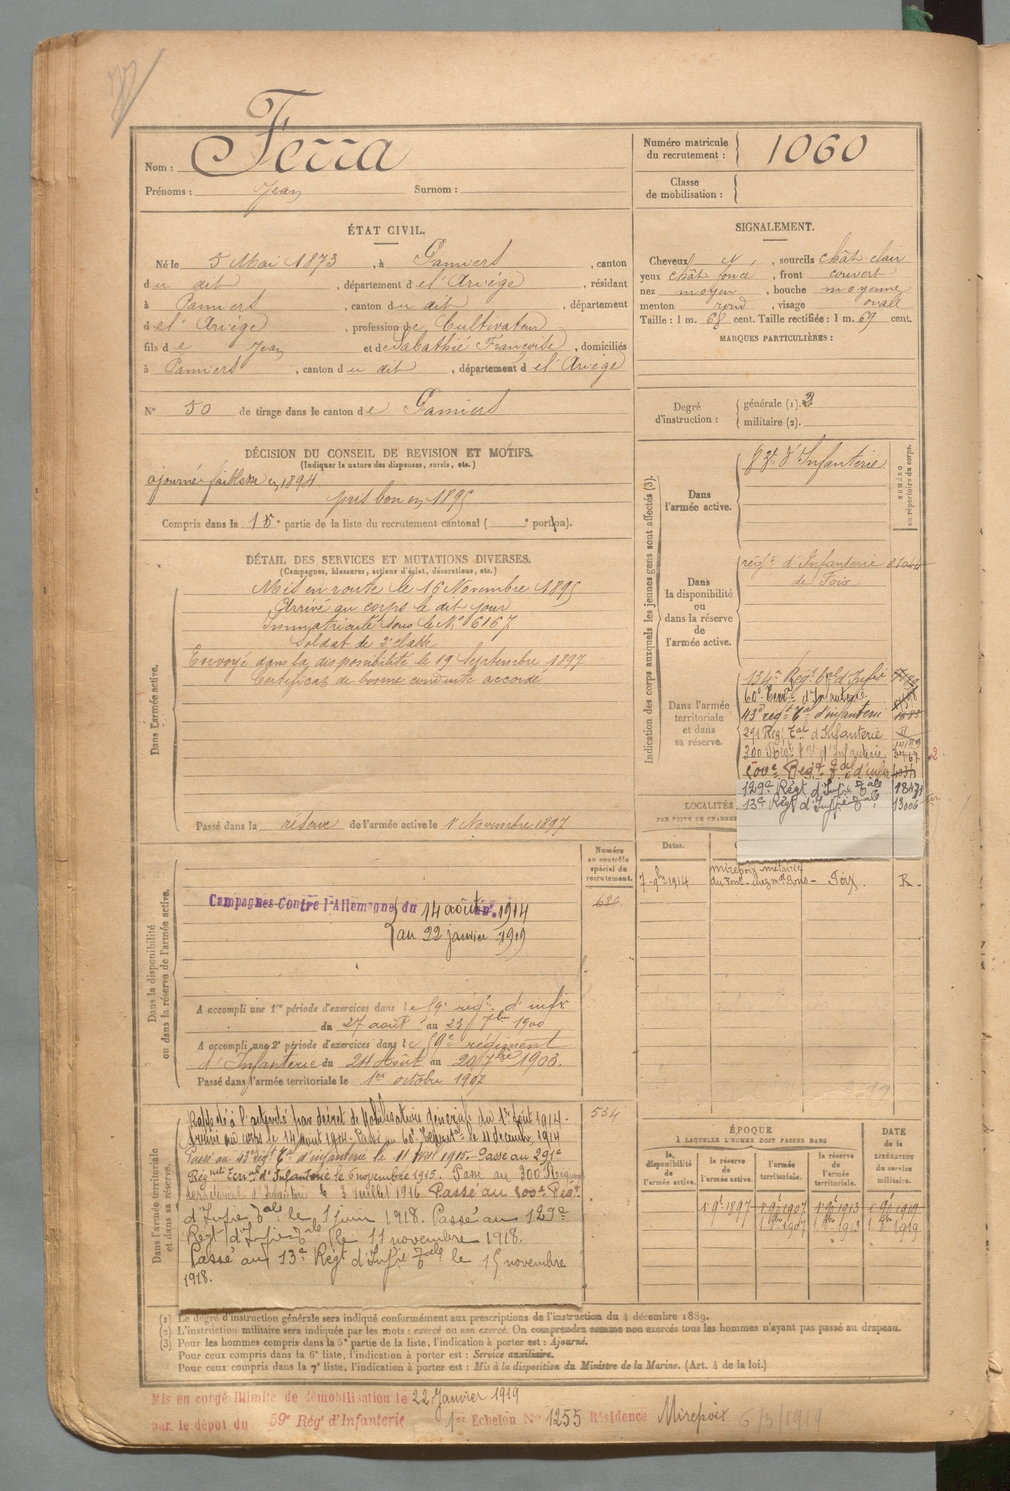 Nom : Ferra
Prénoms : Jean Surnom :
Numéro matricule du recrutement : 1060
Classe de mobilisation :
ÉTAT CIVIL.
Né le 5 Mai 1873, à Pamiers, canton
du dit, département de l'Ariége, résidant
à Pamiers, canton du dit, département
de l'Ariége, profession de Cultivateur
fils de Jean et de Sabathié Françoise, domiciliés
à Pamiers, canton du dit, département de l'Ariége
N° 50 de tirage dans le canton de Pamiers
SIGNALEMENT.
Cheveux , sourcils chât clair
yeux chât foncé, front couvert
nez moyen, bouche moyenne
menton rond, visage ovale
Taille : 1 m. 68 cent. Taille rectifiée : 1 m. 69 cent.
MARQUES PARTICULIÈRES :
Degré d'instruction : générale (1). 2
militaire (2).
DÉCISION DU CONSEIL DE REVISION ET MOTIFS.
(Indiquer la nature des dispenses, sursis, etc.)
ajourné faiblesse en 1894
pris bon en 1895
Compris dans la 1re partie de la liste du recrutement cantonal ( e portion).
DÉTAIL DES SERVICES ET MUTATIONS DIVERSES.
(Campagnes, blessures, actions d'éclat, décorations, etc.)
Dans l'armée active.
Mis en route le 16 Novembre 1895
Arrivé au corps le dit jour
Immatriculé sous le N° 6167
Soldat de 2e classe
Envoyé dans la disponibilité le 19 Septembre 1897
Certificat de bonne conduite accordé
Passé dans la réserve de l'armée active le 1 Novembre 1897
Indication des corps auxquels les jeunes gens sont affectés (3).
NUMÉRO au répertoire du corps.
Dans l'armée active.
d'Infanterie
Dans la disponibilité ou dans la réserve de l'armée active.
régt d'Infanterie
de Foix
Dans l'armée territoriale et dans sa réserve.
134e Régt tal d'Infie
60e d'Infanterie
43e régt Tal d'infanterie
291 Régt Tal d'Infanterie
300 Régt tal d'Infanterie
500e Régt tal d'infie
129e Régt d'Infie Tale
13e Régt d'Infie Tale 13006
LOCALITÉS
Dates.
7 9bre 1914 mirepoix métairie du Pont - chez Mr Pons - Foix. R.
Dans la disponibilité ou dans la réserve de l'armée active.
Numéro au contrôle spécial du recrutement.
680
Campagnes Contre l'Allemagne, du 14 août 1914
au 22 janvier 1919
A accompli une 1re période d'exercices dans le 59e régt d'infie
du 27 août au 23 7bre 1900
A accompli une 2e période d'exercices dans le 59e régiment
d'Infanterie du 24 Août au 20 7bre 1903.
Passé dans l'armée territoriale le 1er octobre 1907
Dans l'armée territoriale et dans sa réserve.
554
Rappelé à l'activité par décret de Mobilisation générale du 1er août 1914.
Arrivé au corps le 14 août 1914. Passé au 60e le 11 décembre 1914
Passé au 43e régt Tal d'infanterie le 11 1915. Passé au 291e
Régiment Territal d'Infanterie le 6 novembre 1915. Passé au 300 Régiment
territorial d'Infanterie le 3 juillet 1916. Passé au 500e Régt
d'Infie Tale le 1 juin 1918. Passé au 129e
Régt d'Infie Tale le 11 novembre 1918.
Passé au 13e Régt d'Infie Tale le 15 novembre
1918.
ÉPOQUE
À LAQUELLE L'HOMME DOIT PASSER DANS
la disponibilité de l'armée active.
la réserve de l'armée active.
l'armée territoriale.
la réserve de l'armée territoriale.
DATE de la LIBÉRATION du service militaire.
1 9bre 1897
(1) Le degré d'instruction générale sera indiqué conformément aux prescriptions de l'instruction du 4 décembre 1889.
(2) L'instruction militaire sera indiquée par les mots : exercé ou non exercé. On comprendra comme non exercés tous les hommes n'ayant pas passé au drapeau.
(3) Pour les hommes compris dans la 5e partie de la liste, l'indication à porter est : Ajourné.
Pour ceux compris dans la 6e liste, l'indication à porter est : Service auxiliaire.
Pour ceux compris dans la 7e liste, l'indication à porter est : Mis à la disposition du Ministre de la Marine. (Art. 4 de la loi.)
Mis en congé illimité de démobilisation le 22 Janvier 1919
par le dépôt du 59e Régt d'Infanterie 1er Echelon N° 1255 Résidence Mirepoix 6/3/1919